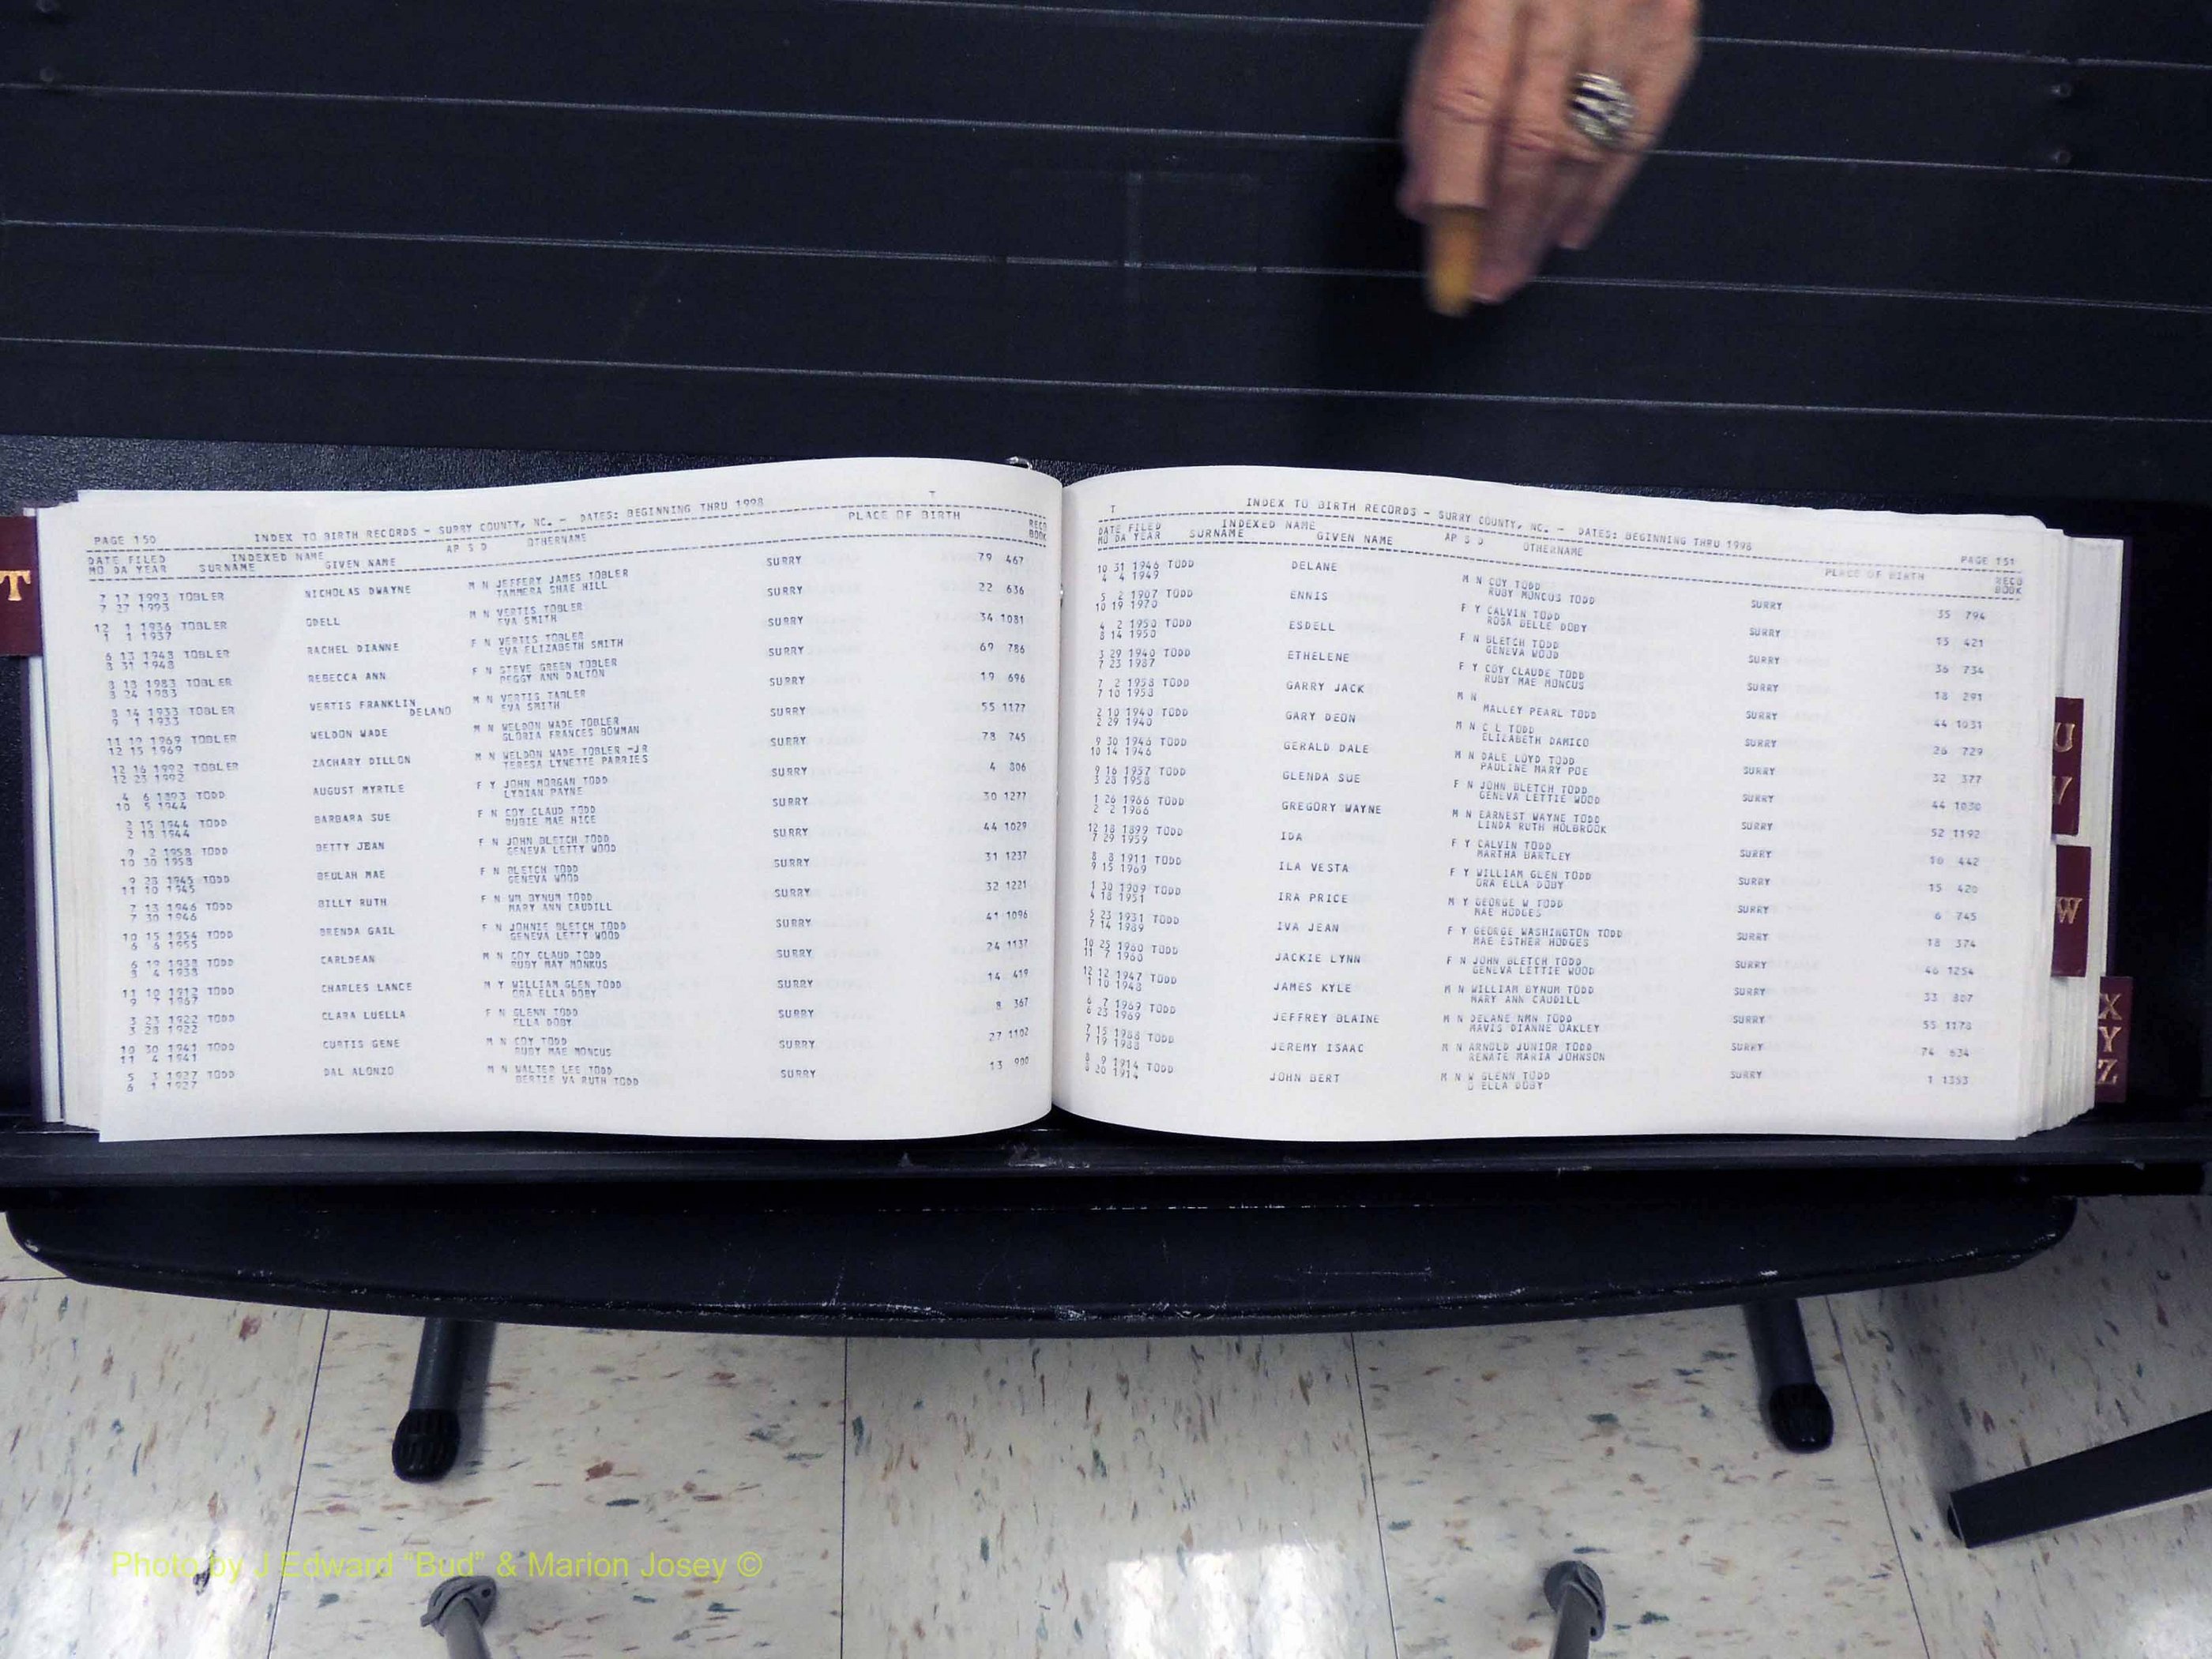 T
PAGE 150 INDEX TO BIRTH RECORDS - SURRY COUNTY, NC. - DATES: BEGINNING THRU 1998 T
DATE FILED INDEXED NAME AP S D OTHERNAME PLACE OF BIRTH RECD
MO DA YEAR SURNAME GIVEN NAME BOOK
7 12 1993 TOBLER NICHOLAS DWAYNE M N JEFFERY JAMES TOBLER SURRY 79 467
7 27 1993 TAMMERA SHAE HILL
12 1 1936 TOBLER ODELL M N VERTIS TOBLER SURRY 22 636
1 1 1937 EVA SMITH
6 13 1948 TOBLER RACHEL DIANNE F N VERTIS TOBLER SURRY 34 1081
8 31 1948 EVA ELIZABETH SMITH
8 18 1983 TOBLER REBECCA ANN F N STEVE GREEN TOBLER SURRY 69 786
8 24 1983 PEGGY ANN DALTON
8 14 1933 TOBLER VERTIS FRANKLIN M N VERTIS TABLER SURRY 19 696
9 1 1933 DELANO EVA SMITH
11 19 1969 TOBLER WELDON WADE M N WELDON WADE TOBLER SURRY 55 1177
12 15 1969 GLORIA FRANCES BOWMAN
12 16 1992 TOBLER ZACHARY DILLON M N WELDON WADE TOBLER -JR SURRY 78 745
12 23 1992 TERESA LYNETTE PARRIES
4 6 1893 TODD AUGUST MYRTLE F Y JOHN MORGAN TODD SURRY 4 806
10 5 1944 LYDIAN PAYNE
2 15 1944 TODD BARBARA SUE F N COY CLAUD TODD SURRY 30 1277
2 18 1944 RUBIE MAE HICE
9 2 1958 TODD BETTY JEAN F N JOHN BLETCH TODD SURRY 44 1029
10 30 1958 GENEVA LETTY WOOD
9 28 1945 TODD BEULAH MAE F N BLETCH TODD SURRY 31 1237
11 10 1945 GENEVA WOOD
7 13 1946 TODD BILLY RUTH F N WM BYNUM TODD SURRY 32 1221
7 30 1946 MARY ANN CAUDILL
10 15 1954 TODD BRENDA GAIL F N JOHNIE BLETCH TODD SURRY 41 1096
6 6 1955 GENEVA LETTY WOOD
6 19 1938 TODD CARLDEAN M N COY CLAUD TODD SURRY 24 1137
8 4 1938 RUBY MAY MONKUS
11 10 1912 TODD CHARLES LANCE M Y WILLIAM GLEN TODD SURRY 14 419
9 7 1967 ORA ELLA DOBY
3 23 1922 TODD CLARA LUELLA F N GLENN TODD SURRY 8 367
3 28 1922 ELLA DOBY
10 30 1941 TODD CURTIS GENE M N COY TODD SURRY 27 1102
11 4 1941 RUBY MAE MONCUS
5 3 1927 TODD DAL ALONZO M N WALTER LEE TODD SURRY 13 900
6 1 1927 BERTIE VA RUTH TODD
T INDEX TO BIRTH RECORDS - SURRY COUNTY, NC. - DATES: BEGINNING THRU 1998 PAGE 151
DATE FILED INDEXED NAME AP S D OTHERNAME PLACE OF BIRTH RECD
MO DA YEAR SURNAME GIVEN NAME BOOK
10 31 1946 TODD DELANE M N COY TODD SURRY 35 794
4 4 1949 RUBY MONCUS TODD
5 2 1907 TODD ENNIS F Y CALVIN TODD SURRY 15 421
10 19 1970 ROSA BELLE DOBY
4 2 1950 TODD ESDELL F N BLETCH TODD SURRY 36 734
8 14 1950 GENEVA WOOD
3 29 1940 TODD ETHELENE F Y COY CLAUDE TODD SURRY 18 291
7 23 1987 RUBY MAE MONCUS
7 2 1958 TODD GARRY JACK M N SURRY 44 1031
7 10 1958 MALLEY PEARL TODD
2 10 1940 TODD GARY DEON M N C L TODD SURRY 26 729
2 29 1940 ELIZABETH DAMICO
9 30 1946 TODD GERALD DALE M N DALE LOYD TODD SURRY 32 377
10 14 1946 PAULINE MARY POE
9 16 1957 TODD GLENDA SUE F N JOHN BLETCH TODD SURRY 44 1030
3 28 1958 GENEVA LETTIE WOOD
1 26 1966 TODD GREGORY WAYNE M N EARNEST WAYNE TODD SURRY 52 1192
2 2 1966 LINDA RUTH HOLBROOK
12 18 1899 TODD IDA F Y CALVIN TODD SURRY 10 442
7 29 1959 MARTHA BARTLEY
8 8 1911 TODD ILA VESTA F Y WILLIAM GLEN TODD SURRY 15 420
9 15 1969 ORA ELLA DOBY
1 30 1909 TODD IRA PRICE M Y GEORGE W TODD SURRY 6 745
4 18 1951 MAE HODGES
5 23 1931 TODD IVA JEAN F Y GEORGE WASHINGTON TODD SURRY 18 374
7 14 1989 MAE ESTHER HODGES
10 25 1960 TODD JACKIE LYNN F N JOHN BLETCH TODD SURRY 46 1254
11 7 1960 GENEVA LETTIE WOOD
12 12 1947 TODD JAMES KYLE M N WILLIAM BYNUM TODD SURRY 33 807
1 10 1948 MARY ANN CAUDILL
6 7 1969 TODD JEFFREY BLAINE M N DELANE NMN TODD SURRY 55 1178
6 23 1969 MAVIS DIANNE OAKLEY
7 15 1988 TODD JEREMY ISAAC M N ARNOLD JUNIOR TODD SURRY 74 634
7 19 1988 RENATE MARIA JOHNSON
8 9 1914 TODD JOHN BERT M N W GLENN TODD SURRY 1 1353
8 20 1914 O ELLA DOBY
U
V
W
X
Y
Z
Photo by J Edward “Bud” & Marion Josey ©